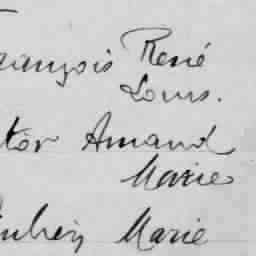 ançois René
Louis.
tor Amand
Marie
Marie